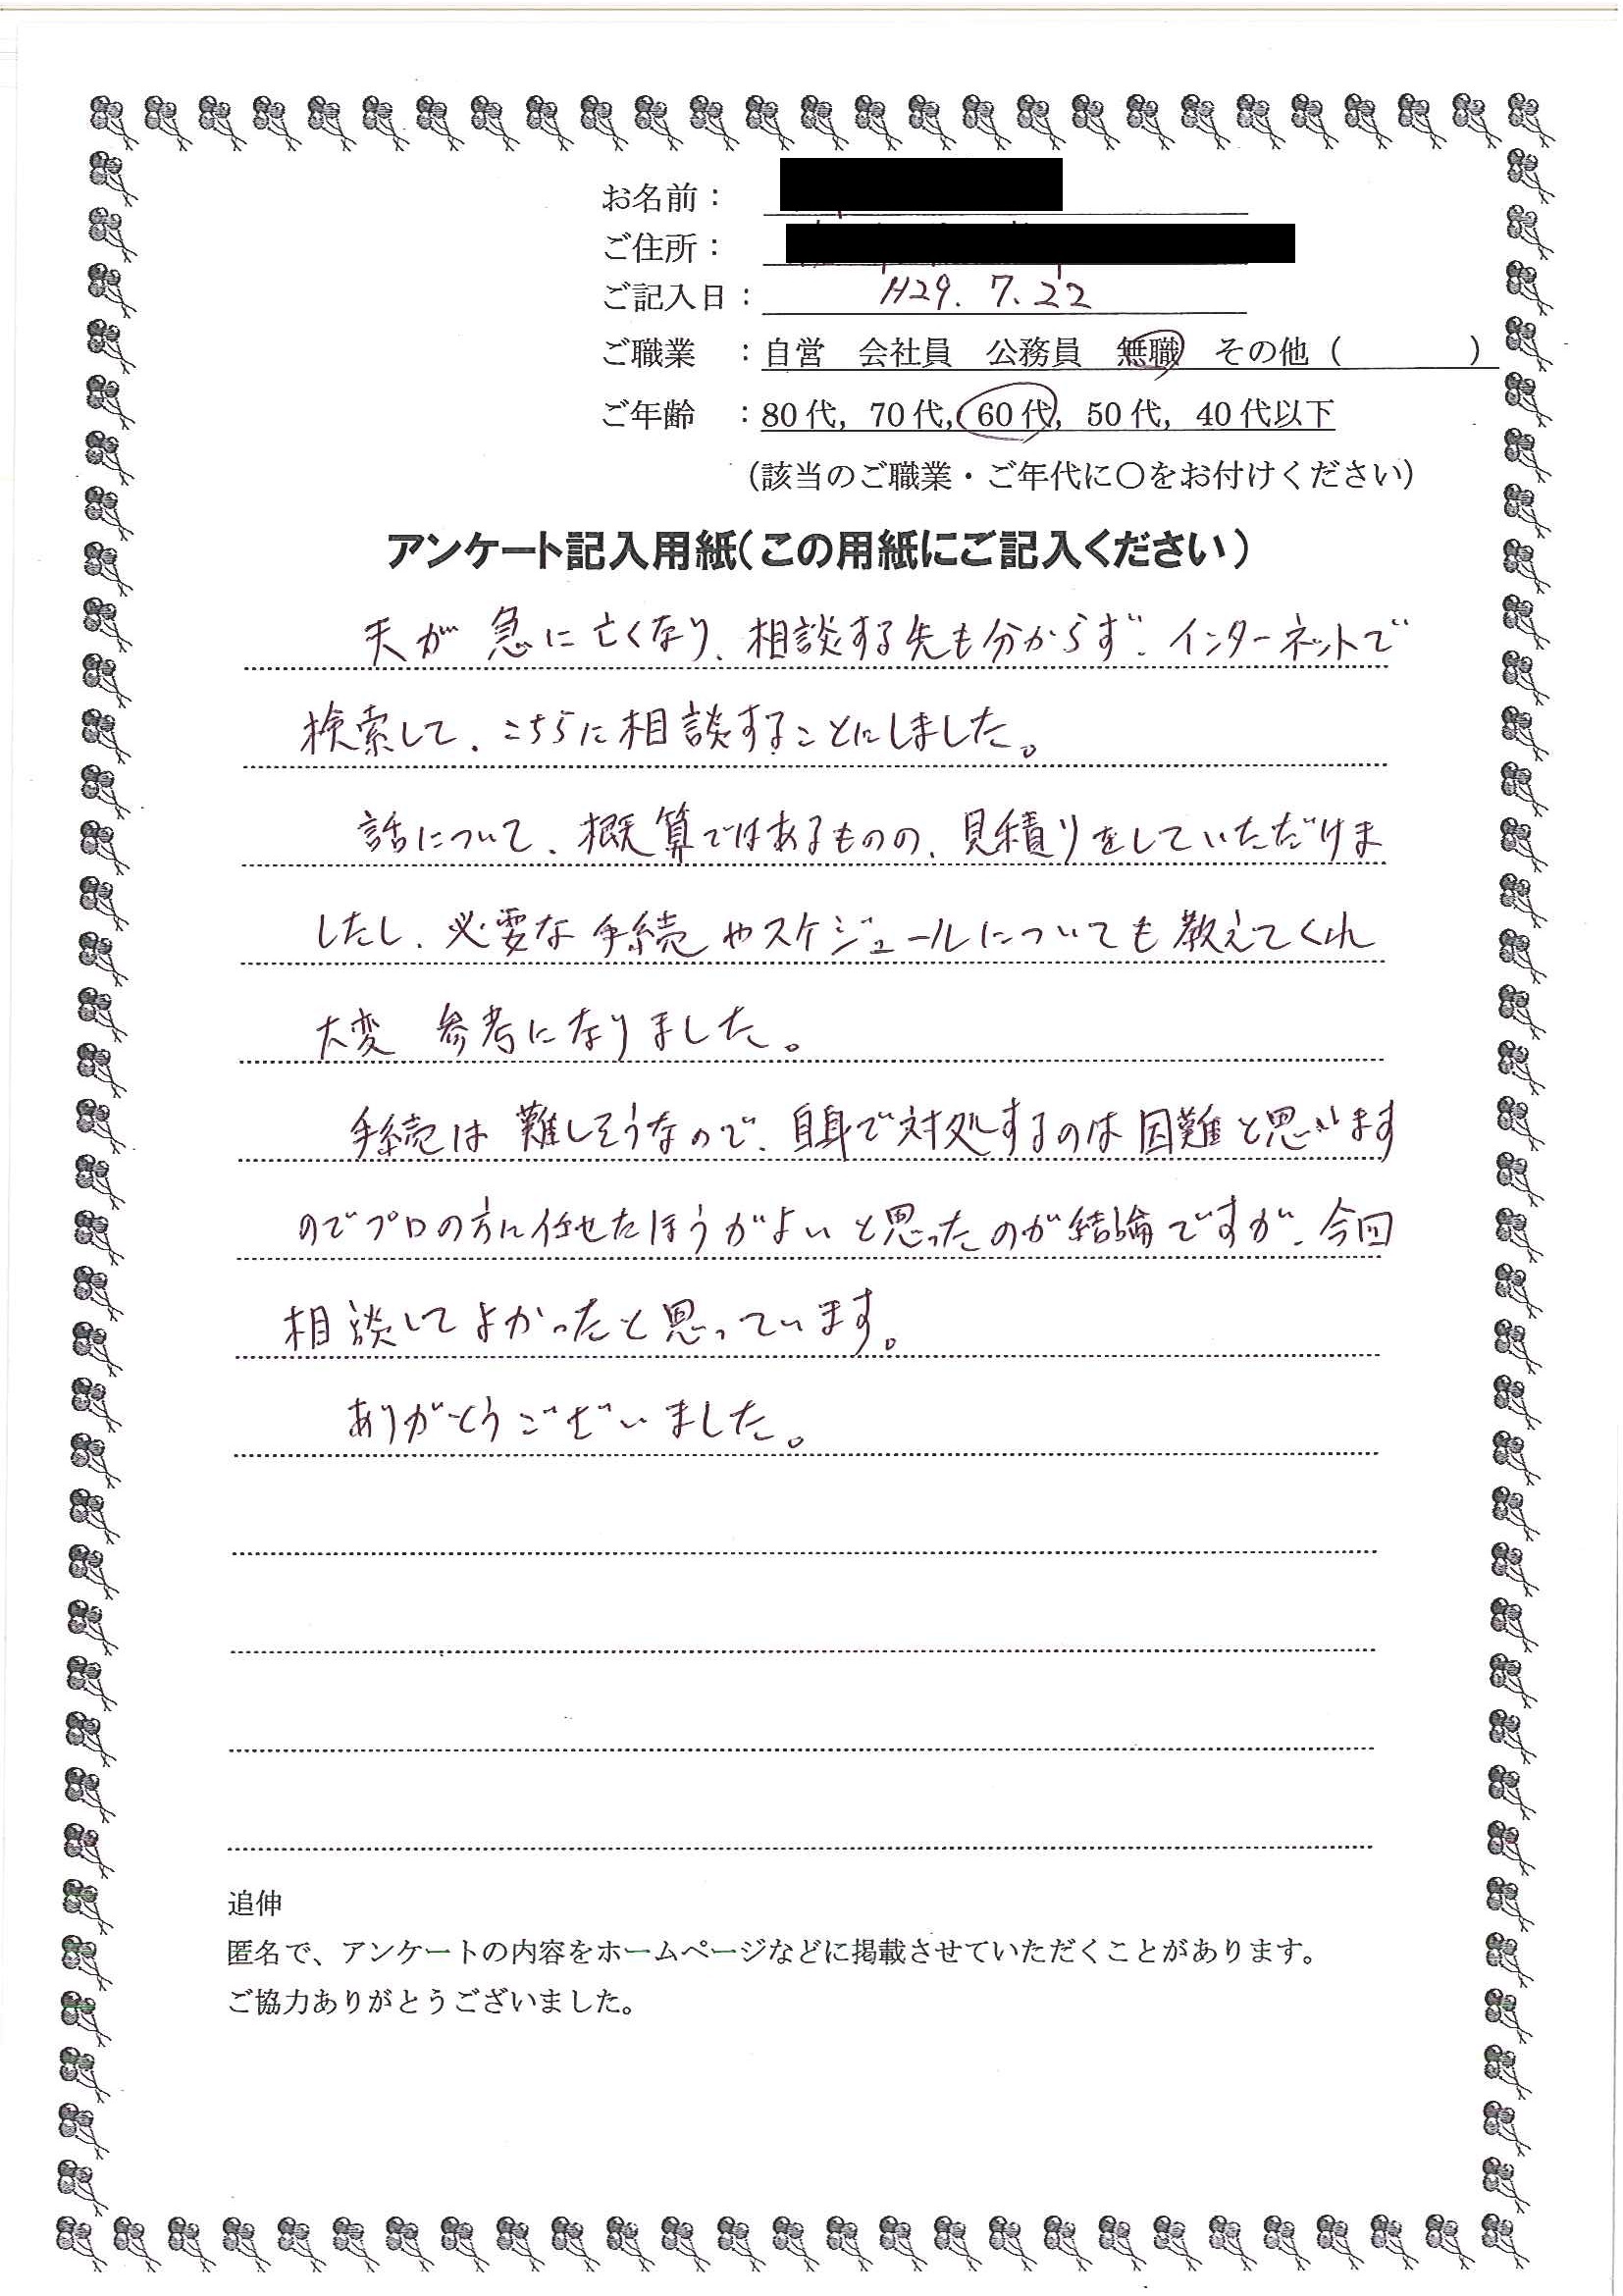 お名前：
ご住所：
ご記入日： H29. 7. 22
ご職業 ：自営 会社員 公務員 無職 その他（ ）
ご年齢 ：80代，70代，60代，50代，40代以下
（該当のご職業・ご年代に〇をお付けください）
アンケート記入用紙（この用紙にご記入ください）
夫が急に亡くなり、相談する先も分からず、インターネットで
検索して、こちらに相談することにしました。
話について、概算ではあるものの、見積りをしていただけま
したし、必要な手続やスケジュールについても教えてくれ
大変 参考になりました。
手続は難しそうなので、自身で対処するのは困難と思います
のでプロの方に任せたほうがよいと思ったのが結論ですが、今回
相談してよかったと思っています。
ありがとうございました。
追伸
匿名で、アンケートの内容をホームページなどに掲載させていただくことがあります。
ご協力ありがとうございました。